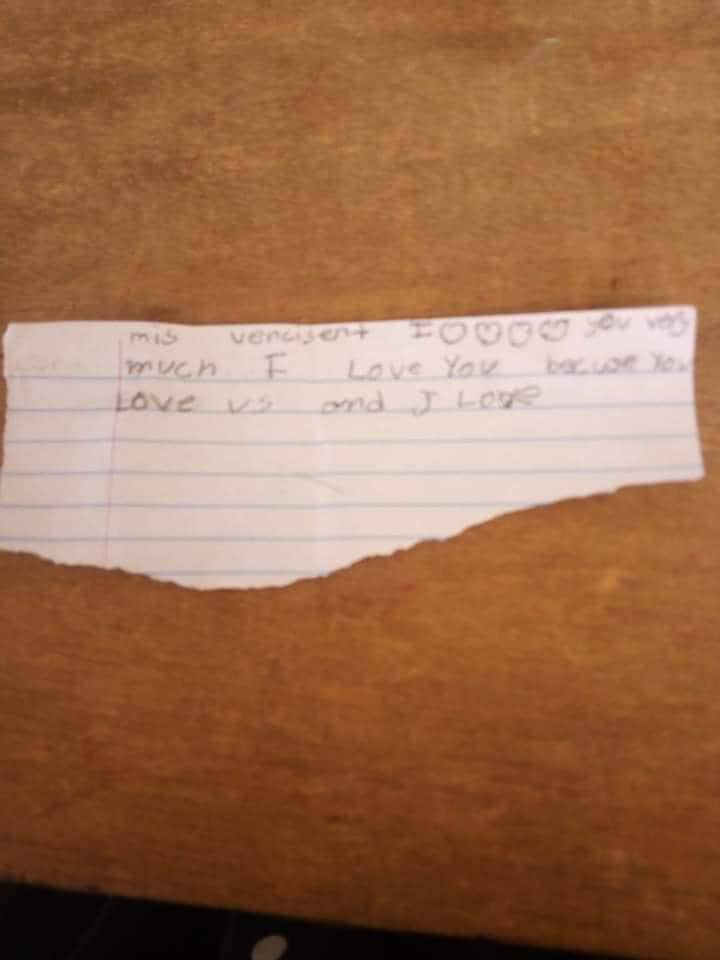 mis vencisent I ♡♡♡♡ you very
much I Love You becuse You
Love us and I Love